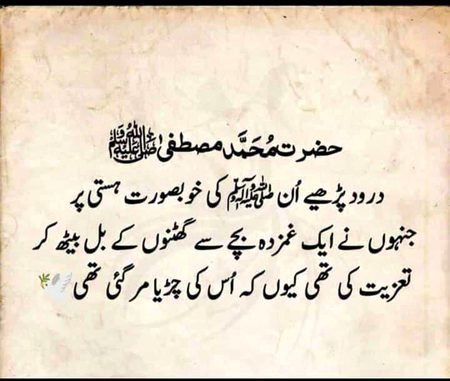 حضرت مُحَمَّد مصطفیٰ ﷺ
درود پڑھیے اُن ﷺ کی خوبصورت ہستی پر
جنہوں نے ایک غمزدہ بچے سے گھٹنوں کے بل بیٹھ کر
تعزیت کی تھی کیوں کہ اُس کی چڑیا مر گئی تھی 🕊️